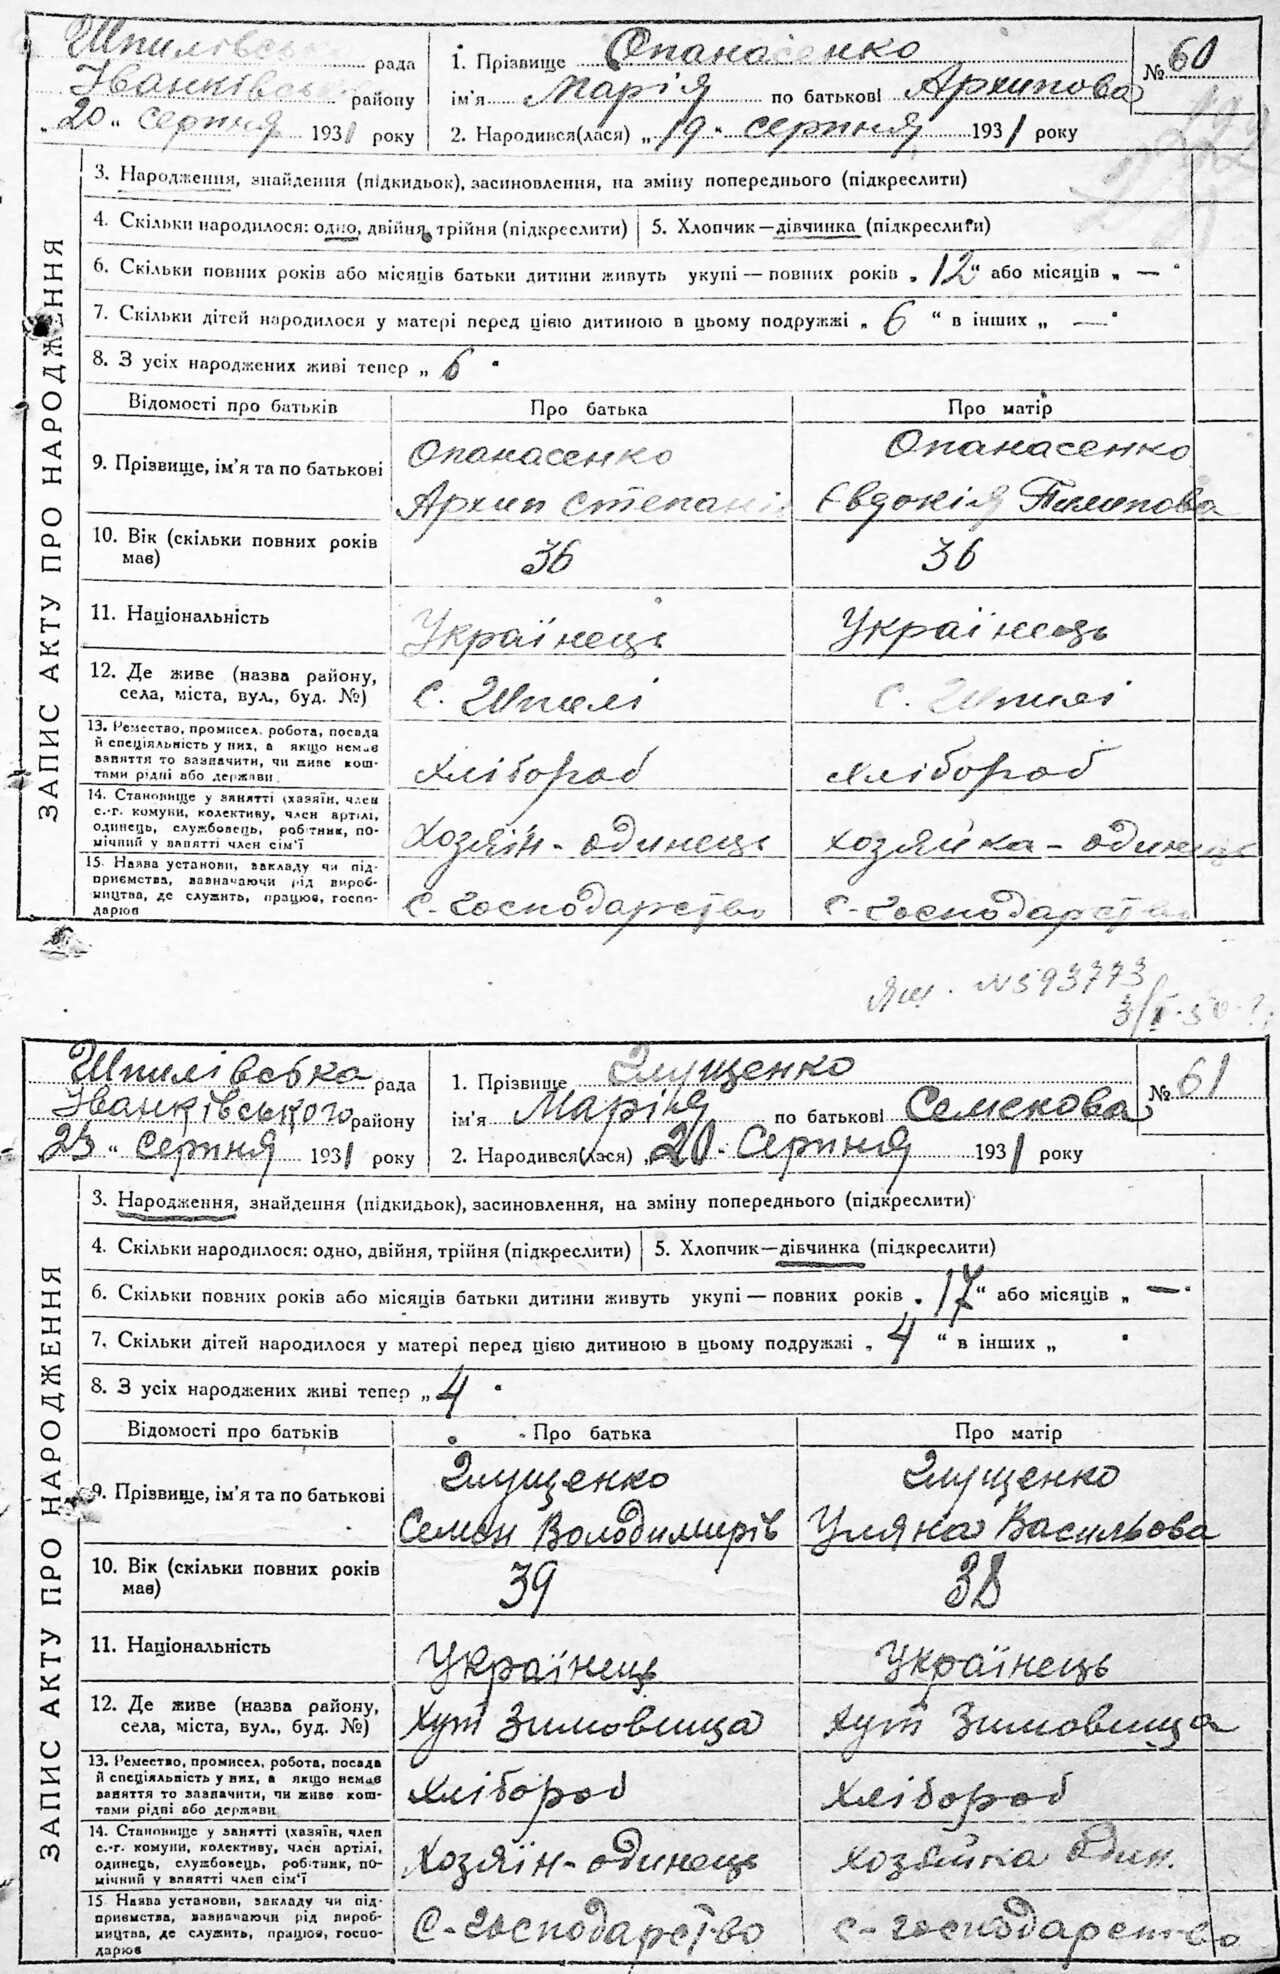 ЗАПИС АКТУ ПРО НАРОДЖЕННЯ
Шпилівська рада
Іванківськ району
„20" серпня 1931 року
1. Прізвище Опанасенко
ім'я Марія по батькові Архипова
2. Народився(лася) „19" серпня 1931 року
№ 60
3. Народження, знайдення (підкидьок), засиновлення, на зміну попереднього (підкреслити)
4. Скільки народилося: одно, двійня, трійня (підкреслити) 5. Хлопчик—дівчинка (підкреслити)
6. Скільки повних років або місяців батьки дитини живуть укупі — повних років „12" або місяців „—"
7. Скільки дітей народилося у матері перед цією дитиною в цьому подружжі „6" в інших „—"
8. З усіх народжених живі тепер „6"
Відомості про батьків Про батька Про матір
9. Прізвище, ім'я та по батькові Опанасенко Опанасенко
Архип Степанів Євдокія
10. Вік (скільки повних років має) 36 36
11. Національність Українець Українець
12. Де живе (назва району, села, міста, вул., буд. №) с. Шпилі с. Шпилі
13. Ремество, промисел, робота, посада й спеціяльність у них, а якщо немає заняття то зазначити, чи живе коштами рідні або держави Хлібороб Хлібороб
14. Становище у занятті (хазяїн, член с.-г. комуни, колективу, член артілі, одинець, службовець, робітник, помічний у занятті член сім'ї Хозяїн-одинець хозяйка-одинець
15. Назва установи, закладу чи підприємства, зазначаючи рід виробництва, де служить, працює, господарює С-господарство С-господарство
№ 593773
ЗАПИС АКТУ ПРО НАРОДЖЕННЯ
Шпилівська рада
Іванківського району
23" серпня 1931 року
1. Прізвище Глущенко
ім'я Марія по батькові Семенова
2. Народився(лася) „20" Серпня 1931 року
№ 61
3. Народження, знайдення (підкидьок), засиновлення, на зміну попереднього (підкреслити)
4. Скільки народилося: одно, двійня, трійня (підкреслити) 5. Хлопчик—дівчинка (підкреслити)
6. Скільки повних років або місяців батьки дитини живуть укупі — повних років „17" або місяців „—"
7. Скільки дітей народилося у матері перед цією дитиною в цьому подружжі „4" в інших „ "
8. З усіх народжених живі тепер „4"
Відомості про батьків Про батька Про матір
9. Прізвище, ім'я та по батькові Глущенко Глущенко
Семен Володимирів Уляна Васильова
10. Вік (скільки повних років має) 39 38
11. Національність Українець Українець
12. Де живе (назва району, села, міста, вул., буд. №) Хут Зимовища Хут Зимовища
13. Ремество, промисел, робота, посада й спеціяльність у них, а якщо немає заняття то зазначити, чи живе коштами рідні або держави Хлібороб Хлібороб
14. Становище у занятті (хазяїн, член с.-г. комуни, колективу, член артілі, одинець, службовець, робітник, помічний у занятті член сім'ї Хозяїн-одинець хозяйка один.
15. Назва установи, закладу чи підприємства, зазначаючи рід виробництва, де служить, працює, господарює С-господарство с-господарство